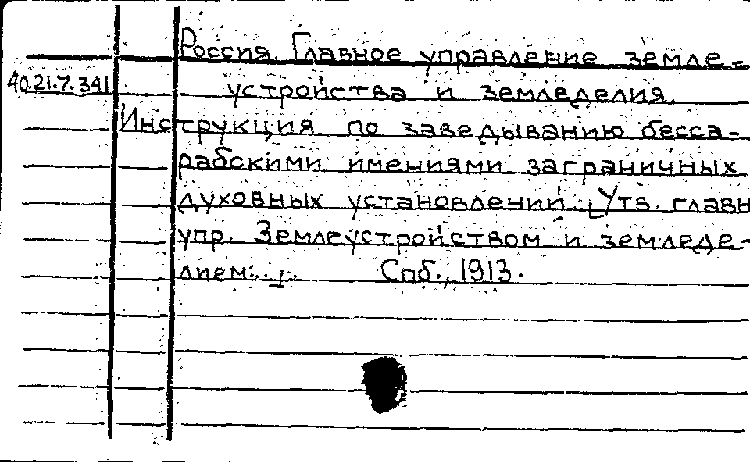 Россия. Главное управление земле-
40.21.7.341
устройства и земледелия.
Инструкция по заведыванию бесса-
рабскими имениями заграничных
духовных установлений. [Утв. главн
упр. Землеустройством и земледе-
лием...]. Спб., 1913.